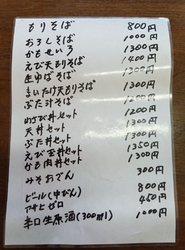 もりそば 800円
おろしそば 1000円
かもせいろ 1300円
えび天もりそば 1400円
生ゆばそば 1300円
まいたけ天もりそば 1300円
ぶた汁そば 1200円
わさび丼セット 1200円
天丼セット 1300円
ぶた丼セット 1300円
えび天丼セット 1350円
かも肉丼セット 1300円
みそおでん 300円
ビール(中びん) 800円
アサヒゼロ 450円
辛口生原酒(300ml) 1000円